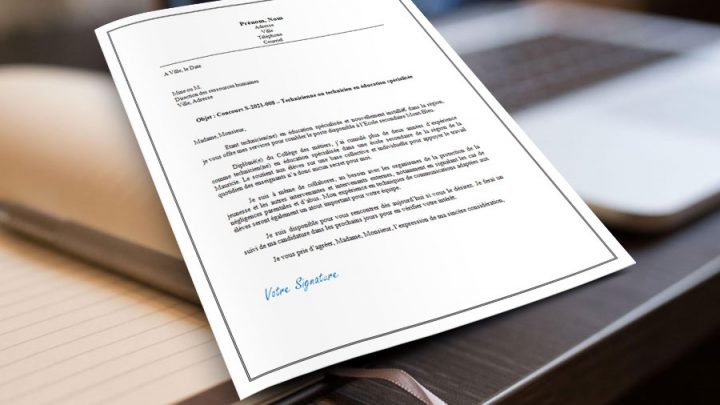 Prénom, Nom
Adresse
Ville
Téléphone
Courriel
A Ville, le Date
Mme ou M.
Direction des ressources humaines
Ville, Adresse
Objet : Concours S-2021-008 – Technicienne ou technicien en éducation spécialisée
Madame, Monsieur,
Étant technicien(ne) en éducation spécialisée et nouvellement installé€ dans la région,
je vous offre mes services pour combler le poste disponible à l'École secondaire Mont-Bleu.
Diplômé(e) du Collège des métiers, j'ai cumulé plus de deux années d'expérience
comme technicien(ne) en éducation spécialisée dans une école secondaire de la région de la
Mauricie. Le soutient aux élèves sur une base collective et individuelle pour appuyer le travail
quotidien des enseignants n'a donc aucun secret pour moi.
Je suis à même de collaborer, au besoin avec les organismes de la protection de la
jeunesse et les autres intervenantes et intervenants externes, notamment en signalant les cas de
négligences parentales et d'abus. Mon expérience en techniques de communications adaptées aux
élèves seront également un atout important pour votre équipe.
Je suis disponible pour vous rencontrer dès aujourd'hui si vous le désirez. Je ferai un
suivi de ma candidature dans les prochains jours pour en vérifier votre intérêt.
Je vous prie d'agréer, Madame, Monsieur, l'expression de ma sincère considération,
Votre Signature